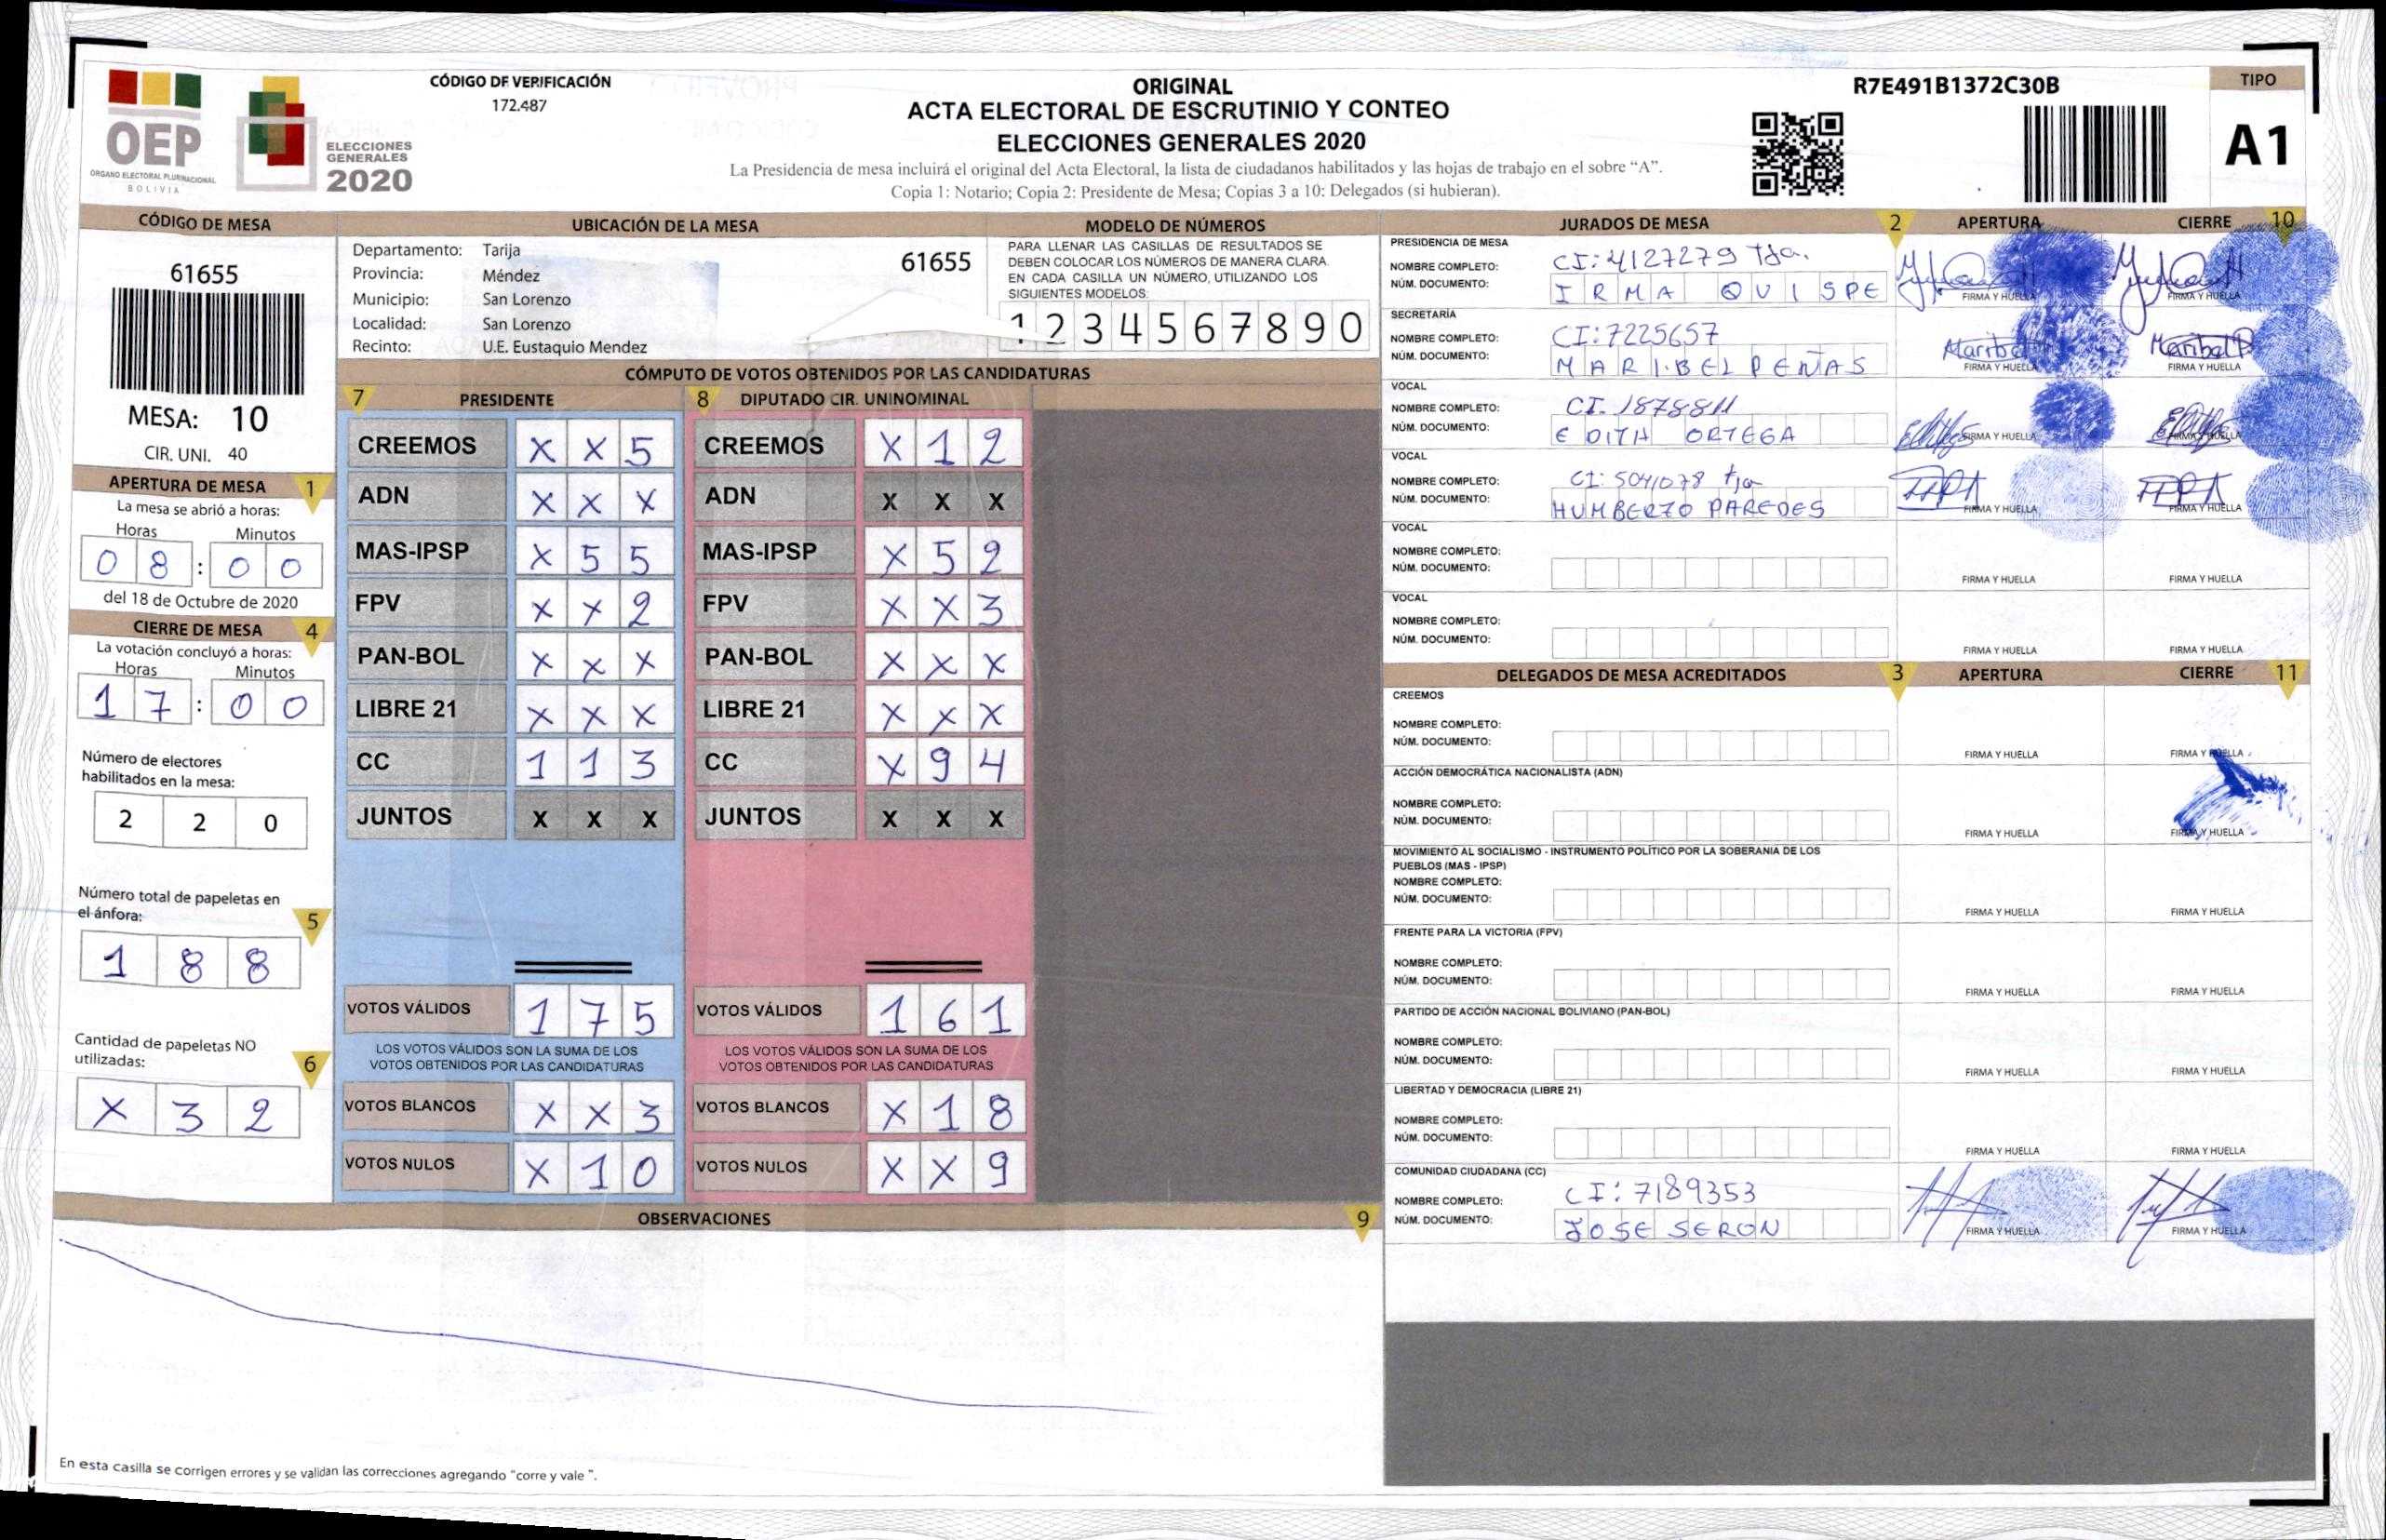 OEP
ÓRGANO ELECTORAL PLURINACIONAL
BOLIVIA
ELECCIONES
GENERALES
2020
CÓDIGO DE VERIFICACIÓN
172.487
ORIGINAL
ACTA ELECTORAL DE ESCRUTINIO Y CONTEO
ELECCIONES GENERALES 2020
La Presidencia de mesa incluirá el original del Acta Electoral, la lista de ciudadanos habilitados y las hojas de trabajo en el sobre “A”.
Copia 1: Notario; Copia 2: Presidente de Mesa; Copias 3 a 10: Delegados (si hubieran).
R7E491B1372C30B
TIPO
A1
CÓDIGO DE MESA
61655
MESA: 10
CIR. UNI. 40
APERTURA DE MESA 1
La mesa se abrió a horas:
Horas Minutos
0 8 : 0 0
del 18 de Octubre de 2020
CIERRE DE MESA 4
La votación concluyó a horas:
Horas Minutos
1 7 : 0 0
Número de electores
habilitados en la mesa:
2 2 0
Número total de papeletas en
el ánfora: 5
1 8 8
Cantidad de papeletas NO
utilizadas: 6
X 3 2
UBICACIÓN DE LA MESA
Departamento: Tarija 61655
Provincia: Méndez
Municipio: San Lorenzo
Localidad: San Lorenzo
Recinto: U.E. Eustaquio Mendez
MODELO DE NÚMEROS
PARA LLENAR LAS CASILLAS DE RESULTADOS SE
DEBEN COLOCAR LOS NÚMEROS DE MANERA CLARA.
EN CADA CASILLA UN NÚMERO, UTILIZANDO LOS
SIGUIENTES MODELOS:
1 2 3 4 5 6 7 8 9 0
CÓMPUTO DE VOTOS OBTENIDOS POR LAS CANDIDATURAS
7 PRESIDENTE 8 DIPUTADO CIR. UNINOMINAL
CREEMOS X X 5 CREEMOS X 1 2
ADN X X X ADN X X X
MAS-IPSP X 5 5 MAS-IPSP X 5 2
FPV X X 2 FPV X X 3
PAN-BOL X X X PAN-BOL X X X
LIBRE 21 X X X LIBRE 21 X X X
CC 1 1 3 CC X 9 4
JUNTOS X X X JUNTOS X X X
VOTOS VÁLIDOS 1 7 5 VOTOS VÁLIDOS 1 6 1
LOS VOTOS VÁLIDOS SON LA SUMA DE LOS LOS VOTOS VÁLIDOS SON LA SUMA DE LOS
VOTOS OBTENIDOS POR LAS CANDIDATURAS VOTOS OBTENIDOS POR LAS CANDIDATURAS
VOTOS BLANCOS X X 3 VOTOS BLANCOS X 1 8
VOTOS NULOS X 1 0 VOTOS NULOS X X 9
OBSERVACIONES 9
En esta casilla se corrigen errores y se validan las correcciones agregando "corre y vale ".
JURADOS DE MESA 2 APERTURA CIERRE 10
PRESIDENCIA DE MESA
NOMBRE COMPLETO: CI: 4127279 Tja.
NÚM. DOCUMENTO: IRMA QUISPE
FIRMA Y HUELLA FIRMA Y HUELLA
SECRETARÍA
NOMBRE COMPLETO: CI: 7225657
NÚM. DOCUMENTO: MARIBEL PEÑAS
Maribel Maribel P
FIRMA Y HUELLA FIRMA Y HUELLA
VOCAL
NOMBRE COMPLETO: CI. 1878811
NÚM. DOCUMENTO: EDITH ORTEGA
FIRMA Y HUELLA FIRMA Y HUELLA
VOCAL
NOMBRE COMPLETO: CI: 5041078 tja
NÚM. DOCUMENTO: HUMBERTO PAREDES
FIRMA Y HUELLA FIRMA Y HUELLA
VOCAL
NOMBRE COMPLETO:
NÚM. DOCUMENTO:
FIRMA Y HUELLA FIRMA Y HUELLA
VOCAL
NOMBRE COMPLETO:
NÚM. DOCUMENTO:
FIRMA Y HUELLA FIRMA Y HUELLA
DELEGADOS DE MESA ACREDITADOS 3 APERTURA CIERRE 11
CREEMOS
NOMBRE COMPLETO:
NÚM. DOCUMENTO:
FIRMA Y HUELLA FIRMA Y HUELLA
ACCIÓN DEMOCRÁTICA NACIONALISTA (ADN)
NOMBRE COMPLETO:
NÚM. DOCUMENTO:
FIRMA Y HUELLA FIRMA Y HUELLA
MOVIMIENTO AL SOCIALISMO - INSTRUMENTO POLÍTICO POR LA SOBERANIA DE LOS
PUEBLOS (MAS - IPSP)
NOMBRE COMPLETO:
NÚM. DOCUMENTO:
FIRMA Y HUELLA FIRMA Y HUELLA
FRENTE PARA LA VICTORIA (FPV)
NOMBRE COMPLETO:
NÚM. DOCUMENTO:
FIRMA Y HUELLA FIRMA Y HUELLA
PARTIDO DE ACCIÓN NACIONAL BOLIVIANO (PAN-BOL)
NOMBRE COMPLETO:
NÚM. DOCUMENTO:
FIRMA Y HUELLA FIRMA Y HUELLA
LIBERTAD Y DEMOCRACIA (LIBRE 21)
NOMBRE COMPLETO:
NÚM. DOCUMENTO:
FIRMA Y HUELLA FIRMA Y HUELLA
COMUNIDAD CIUDADANA (CC)
NOMBRE COMPLETO: CI: 7189353
NÚM. DOCUMENTO: JOSE SERON
FIRMA Y HUELLA FIRMA Y HUELLA